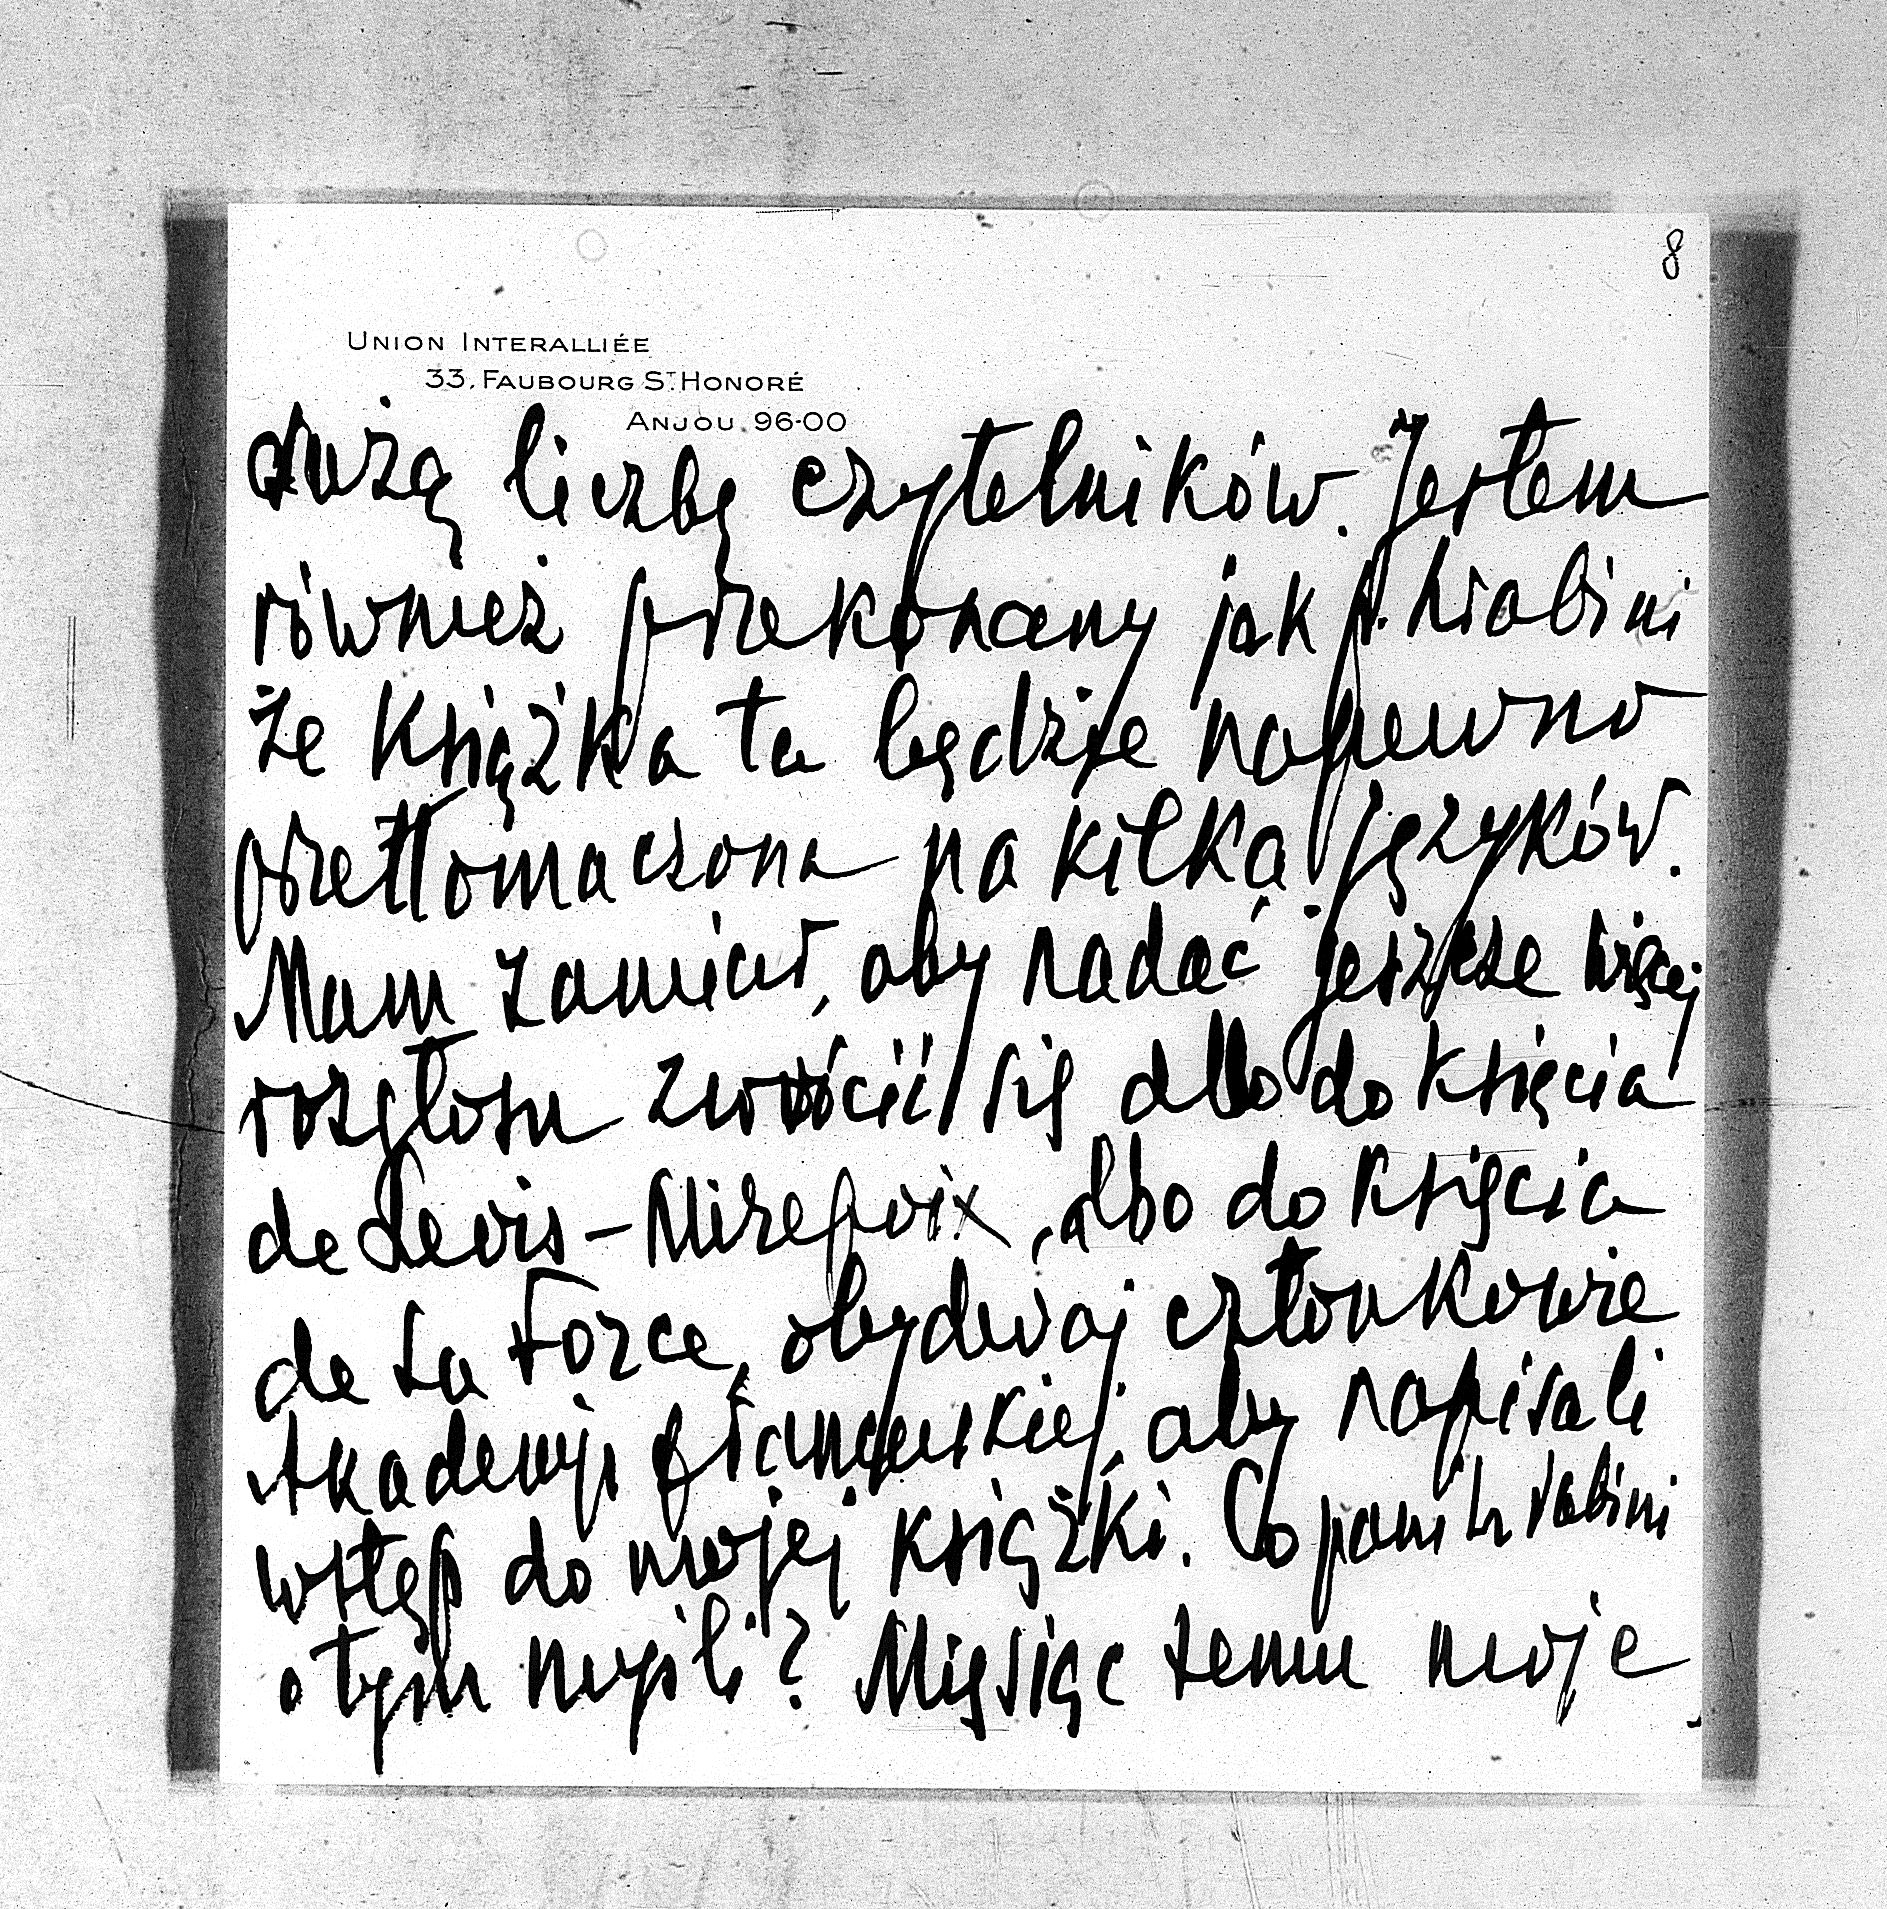 8
UNION INTERALLIÉE
33, FAUBOURG ST. HONORÉ
ANJOU. 96-00
dużą liczbę czytelników. Jestem
również przekonany jak p. hrabini
że książka ta będzie napewno
przetłomaczona na kilka języków.
Mam zamiar, aby nadać jeszcze więcej
rozgłosu zwrócić się albo do księcia
de Levis-Mirepoix, albo do księcia
de La Force, obydwaj członkowie
Akademji francuskiej, aby napisali
wstęp do mojej książki. Co pani hrabini
o tym myśli? Miesiąc temu moje